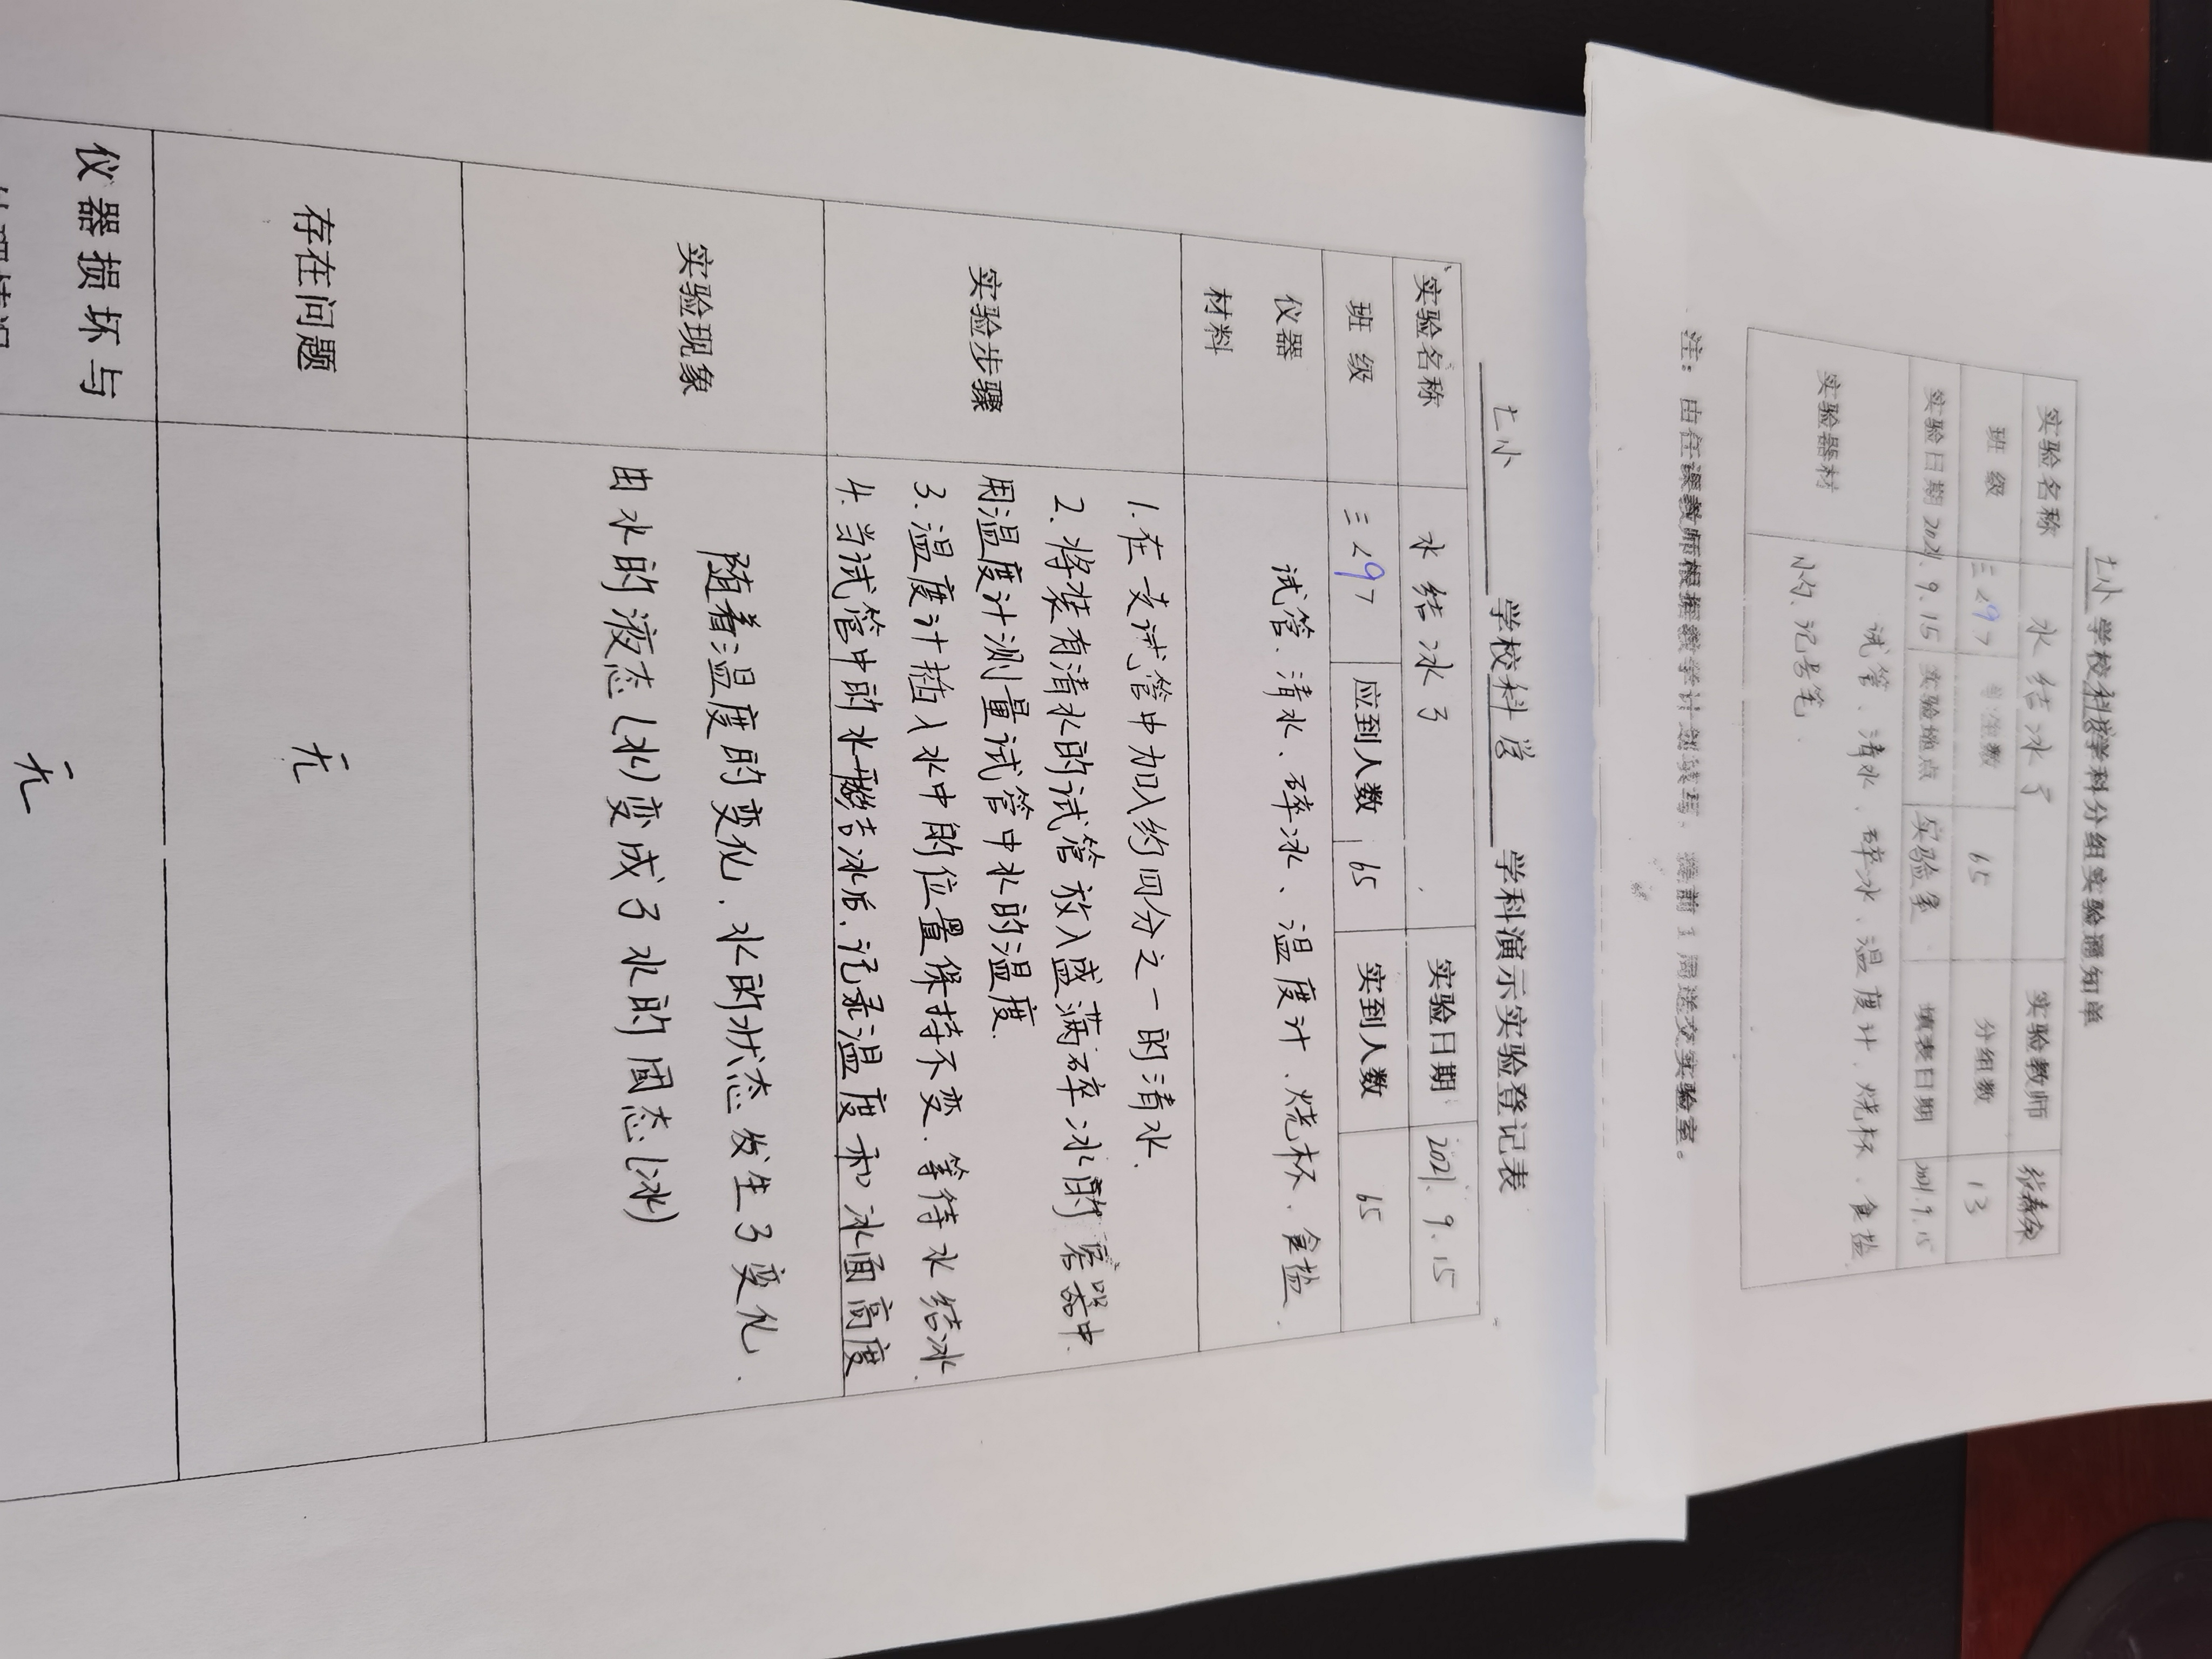 七小学校科学学科分组实验通知单
实验名称 水结冰了 实验教师
班级 三 学生数 65 分组数 13
实验日期 2021.9.15 实验地点 实验室 填表日期 2021.9.15
实验器材 试管、清水、碎冰、温度计、烧杯、食盐
小勺、记号笔.
注：由任课教师根据教学计划填写，提前1周送交实验室。
七小 学校 科学 学科演示实验登记表
实验名称 水结冰了 实验日期 2021.9.15
班级 三 应到人数 65 实到人数 65
仪器
材料
试管、清水、碎冰、温度计、烧杯、食盐.
实验步骤
1.在支试管中加入约四分之一的清水.
2.将装有清水的试管放入盛满碎冰的容器中.
用温度计测量试管中水的温度.
3.温度计插入水中的位置保持不变.等待水结冰.
4.当试管中的水结冰后.记录温度和冰面高度
实验现象
随着温度的变化.水的状态发生了变化.
由水的液态(水)变成了水的固态(冰)
存在问题 无
仪器损坏与
无